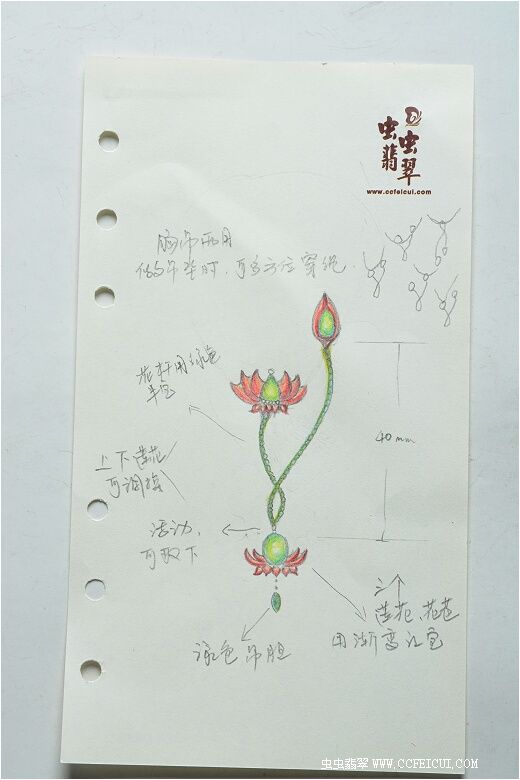 虫虫
翡翠
www.ccfeicui.com
胸吊两用
做吊坠时，可多方位穿绳.
花杆用绿色
半宝
40mm
上下莲花
可调换
活动，
可取下
三个
莲花、花苞
用渐变红宝
绿色吊胆
虫虫翡翠 WWW.CCFEICUI.COM